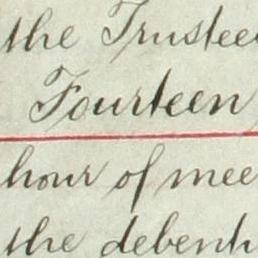 the Trustee
Fourteen
hour of mee
the debent